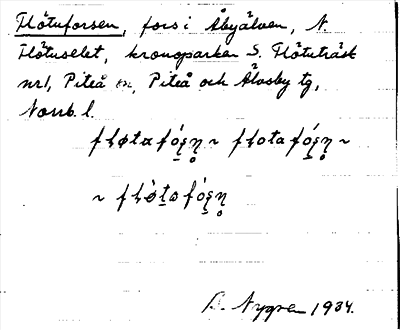 Flötuforsen, fors i Åbyälven, N.
Flötuselet, kronoparken S. Flötuträsk
nr 1, Piteå sn, Piteå och Älvsby tg,
Norrb. l.
fløtafóṣṇ ~ flotafóṣṇ ~
~ flø̀tafóṣṇ
B. Nygren 1934.